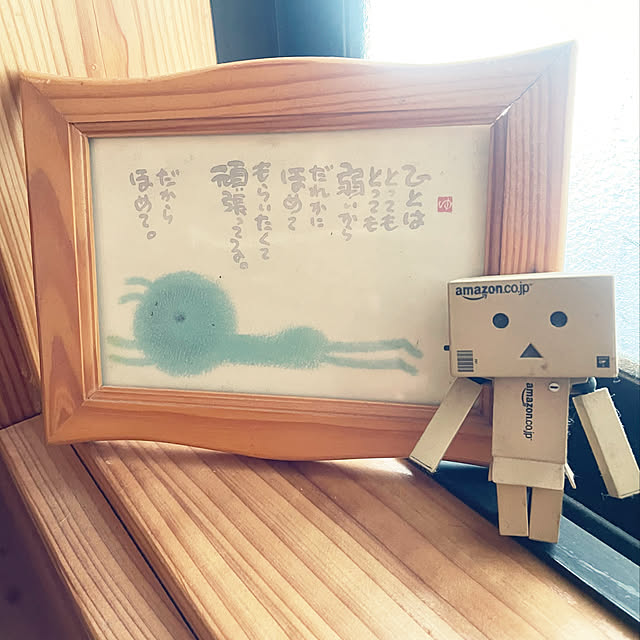 ゆ
ひとは
とても
とっても
弱いから
だれかに
ほめて
もらいたくて
頑張ってるよ。
だから
ほめて。
amazon.co.jp
amazon.co.jp